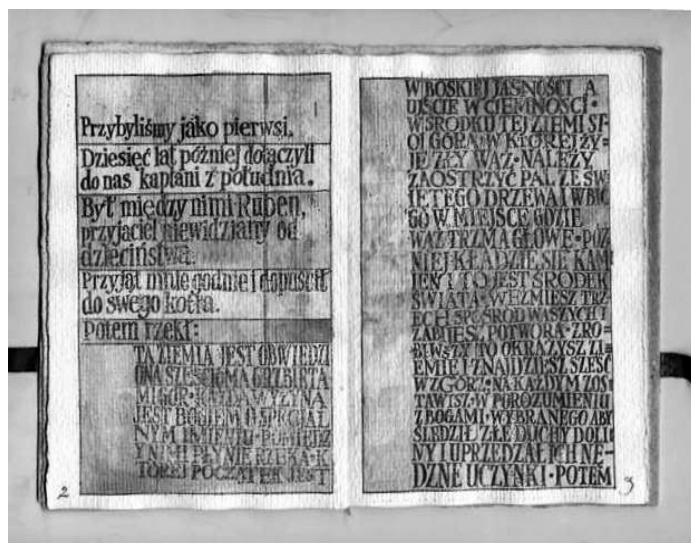 Przybyliśmy jako pierwsi.
Dziesięć lat później dołączyli
do nas kapłani z południa.
Był między nimi Ruben,
przyjaciel niewidziany od
dzieciństwa.
Przyjął mnie godnie i dopuścił
do swego kotła.
Potem rzekł:
TA ZIEMIA JEST OBWIEDZI
ONA SZEŚCIOMA GRZBIETA
MI GÓR · KAŻDA WYŻYNA
JEST BOGIEM O SPECJAL
NYM IMIENIU · POMIĘDZ
Y NIMI PŁYNIE RZEKA · K
TÓREJ POCZĄTEK JEST
2
W BOSKIEJ JASNOŚCI A
UJŚCIE W CIEMNOŚCI ·
W ŚRODKU TEJ ZIEMI ST
OI GÓRA W KTÓREJ ŻY=
JE ZŁY WĄŻ · NALEŻY
ZAOSTRZYĆ PAL ZE ŚW
IĘTEGO DRZEWA I WBIĆ
GO W MIEJSCE GDZIE
WĄŻ TRZMA GŁOWĘ · PÓŹ
NIEJ KŁADZIE SIĘ KAM
IEŃ I TO JEST ŚRODEK
ŚWIATA · WEŹMIESZ TRZ
ECH SPOŚRÓD WASZYCH I
ZABIJESZ POTWORA · ZRO=
BIWSZY TO OKRĄŻYSZ ZI=
EMIĘ I ZNAJDZIESZ SZEŚĆ
WZGÓRZ · NA KAŻDYM ZOS
TAWISZ · W POROZUMIENIU
Z BOGAMI · WYBRANEGO ABY
ŚLEDZIŁ ZŁE DUCHY DOLI
NY I UPRZEDZAŁ ICH NĘ-
DZNE UCZYNKI · POTEM
3